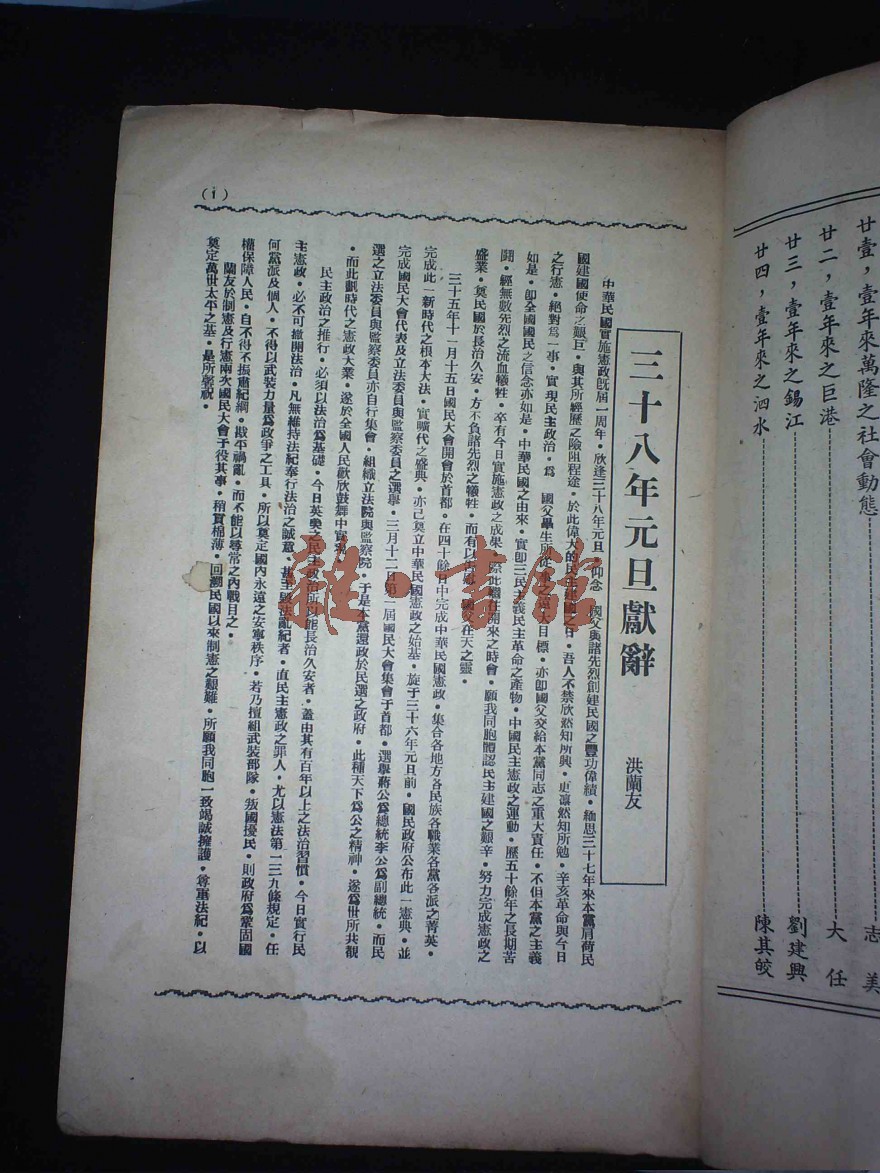 廿壹,壹年來萬隆之社會動態 志美
廿二,壹年來之巨港 大任
廿三,壹年來之錫江 劉建興
廿四,壹年來之泗水 陳其皎
(1)
三十八年元旦獻辭
洪蘭友
中華民國實施憲政旣屆一周年・欣逢三十八年元旦・仰念 國父與諸先烈創建民國之豐功偉績・緬思三十七年來本黨肩荷民
國建國使命之艱巨・與其所經歷之險阻程途・於此偉大的民主建國之日・吾人不禁欣然知所興・更凜然知所勉・辛亥革命與今日
之行憲・絕對爲一事・實現民主政治・爲 國父畢生所從事之遠大目標・亦卽國父交給本黨同志之重大責任・不但本黨之主義
如是・卽全國國民之信念亦如是・中華民國之由來・實卽三民主義民主革命之產物・中國民主憲政之運動・歷五十餘年之長期苦
鬪・經無數先烈之流血犧牲・卒有今日實施憲政之成果・際此繼往開來之時會・願我同胞體認民主建國之艱辛・努力完成憲政之
盛業・奠民國於長治久安・方不負諸先烈之犧牲・而有以 國父在天之靈・
三十五年十一月十五日國民大會開會於首都・在四十餘日中完成中華民國憲政・集合各地方各民族各職業各黨各派之菁英・
完成此一新時代之根本大法・實曠代之盛典・亦已奠立中華民國憲政之始基・旋于三十六年元旦前・國民政府公布此一憲典・並
完成國民大會代表及立法委員與監察委員之選舉・三月十二日第一屆國民大會集會于首都・選舉蔣公爲總統李公爲副總統・而民
選之立法委員與監察委員亦自行集會・組織立法院與監察院・于是本黨還政於民選之政府・此種天下爲公之精神・遂爲世所共覩
・而此劃時代之憲政大業・遂於全國人民歡欣鼓舞中實現・
民主政治之推行・必須以法治爲基礎・今日英美之民主政治所以能長治久安者・蓋由其有百年以上之法治習慣・今日實行民
主憲政・必不可撤開法治・凡無維持法紀奉行法治之誠意・甚至毀法亂紀者・直民主憲政之罪人・尤以憲法第一三九條規定・任
何黨派及個人・不得以武裝力量爲政爭之工具・所以奠定國內永遠之安寧秩序・若乃擅組武裝部隊・叛國擾民・則政府爲鞏固國
權保障人民・自不得不振肅紀綱・戡平禍亂・而不能以尋常之內戰目之・
蘭友於制憲及行憲兩次國民大會于役其事・稍貢棉薄・回溯民國以來制憲之艱難・所願我同胞一致竭誠擁護・尊重法紀・以
奠定萬世太平之基・是所馨祝・
雜・書館